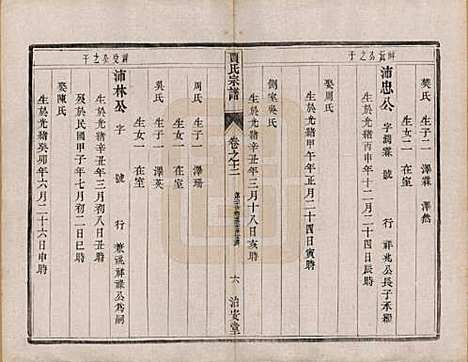 祥益公之子
浦忠公 字潤霖 號 行 祥兆公長子承繼
生於光緒丙申年十二月二十四日辰時
娶周氏
生於光緒甲午年正月二十四日寅時
側室吳氏
生於光緒辛丑年三月十八日亥時
樊氏 生子二 澤霖 澤然
生女二 在室
賈氏宗譜
卷之十二
六 治安堂
周氏 生子一 澤瑞
生女二 在室
吳氏 生子一 澤英
生女一 在室
祥發公之子
浦林公 字 號 行 兼祧祥祿公為嗣
生於光緒辛丑年三月二十一日寅時
歿於民國甲子年七月初二日巳時
娶陳氏
生於光緒癸卯年六月二十六日申時